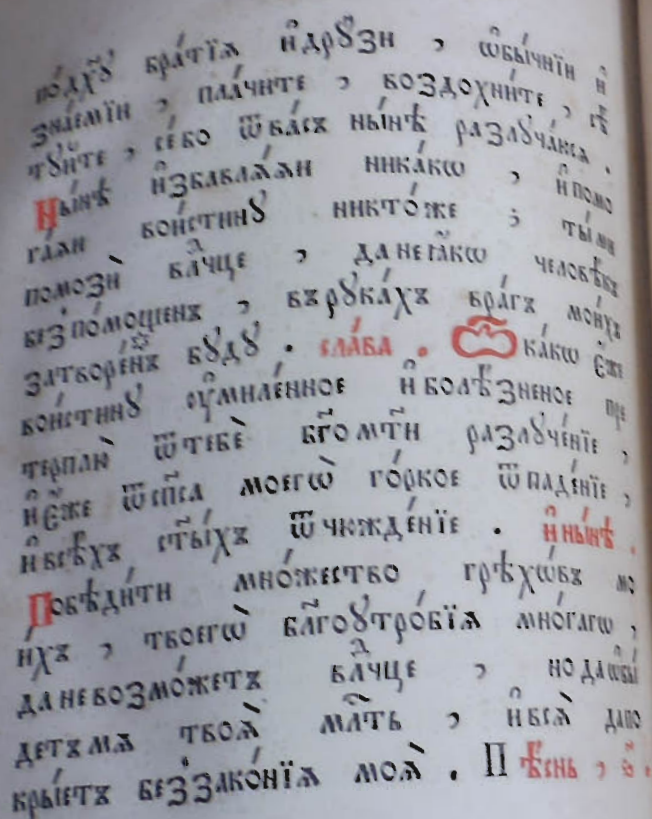 по́дх꙽ꙋ бра́тїѧ и҆дрꙋ́зи , ѡ҆бы́чнїи и҆
зна́емїи , пла́чите , воздохни́те , сѣ́
тꙋ́ите , се́бо ѿва́съ ны́нѣ разлꙋча́юсѧ .
Ны́нѣ и҆збавлѧ́ѧи ника́кѡ , и҆помо
га́ѧи вои́стинꙋ никто́же ; ты́ми
помозѝ влⷣчце , данеꙗ҆́кѡ человѣ́къ
безпо́мощенъ , върꙋка́хъ вра́гъ мои́хъ
затворе́нъ бꙋ́дꙋ . сла́ва . Ѽ ка́кѡ є҆́же
вои́стинꙋ ᲂу҆миле́нное и҆болѣ́зненое пре
терплю̀ ѿтебѐ бг҃омт҃и разлꙋче́нїе ,
и҆є҆́же ѿсп҃са моегѡ̀ го́ркое ѿпаде́нїе ,
и҆всѣ́хъ ст҃ы́хъ ѿчюжде́нїе . и҆ ны́нѣ .
Побѣди́ти мно́жество грѣхѡ́въ мо
и́хъ , твоегѡ̀ бл҃гоꙋтро́бїѧ мно́гагѡ ,
даневозмо́жетъ влⷣчце , но даѡ҆бы́
детъмѧ твоѧ̀ мл҃ть , и҆всѧ̀ дапо
кры́етъ беззако́нїѧ моѧ̀ . Пѣ́снь , ѕ҃ .